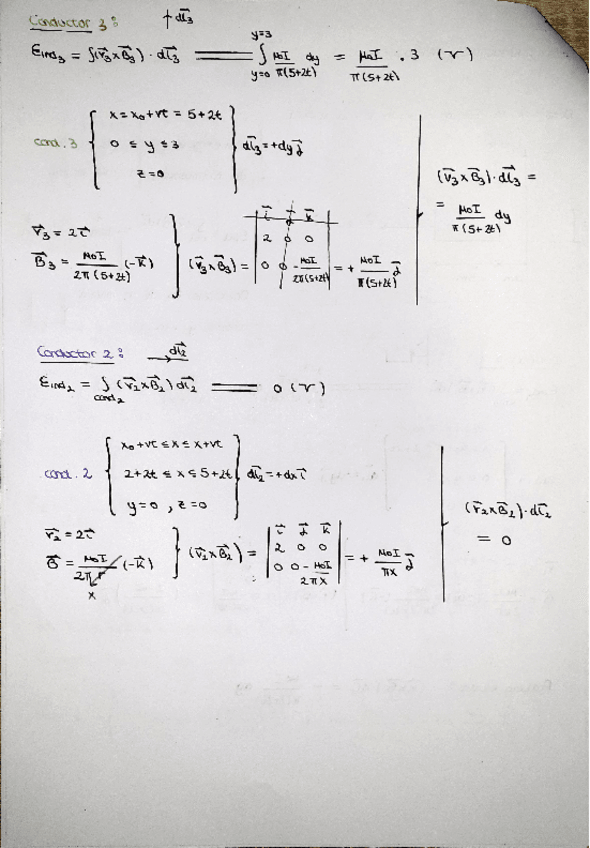 Conductor 3: ↑ dl⃗₃
Eind₃ = ∫(v⃗₃×B⃗₃)·dl⃗₃ ═══ ∫_{y=0}^{y=3} μ₀I/π(5+2t) dy = μ₀I/π(5+2t) · 3 (V)
cond. 3 { x = x₀+vt = 5+2t
0 ≤ y ≤ 3
z=0 } dl⃗₃=+dy j⃗
(v⃗₃×B⃗₃)·dl⃗₃ =
= μ₀I/π(5+2t) dy
v⃗₃ = 2i⃗
B⃗₃ = μ₀I/2π(5+2t) (-k⃗) } (v⃗₃×B⃗₃) = | i⃗ j⃗ k⃗ | 2 0 0 | 0 0 -μ₀I/2π(5+2t) | = + μ₀I/π(5+2t) j⃗
Conductor 2: → dl⃗₂
Eind₂ = ∫_{cond 2} (v⃗₂×B⃗₂) dl⃗₂ ═══ 0 (V)
cond. 2 { x₀+vt ≤ x ≤ x+vt
2+2t ≤ x ≤ 5+2t
y=0, z=0 } dl⃗₂=+dx i⃗
(v⃗₂×B⃗₂)·dl⃗₂
= 0
v⃗₂ = 2i⃗
B⃗ = μ₀I/2πr (-k⃗) } (v⃗₂×B⃗₂) = | i⃗ j⃗ k⃗ | 2 0 0 | 0 0 -μ₀I/2πx | = + μ₀I/πx j⃗
x